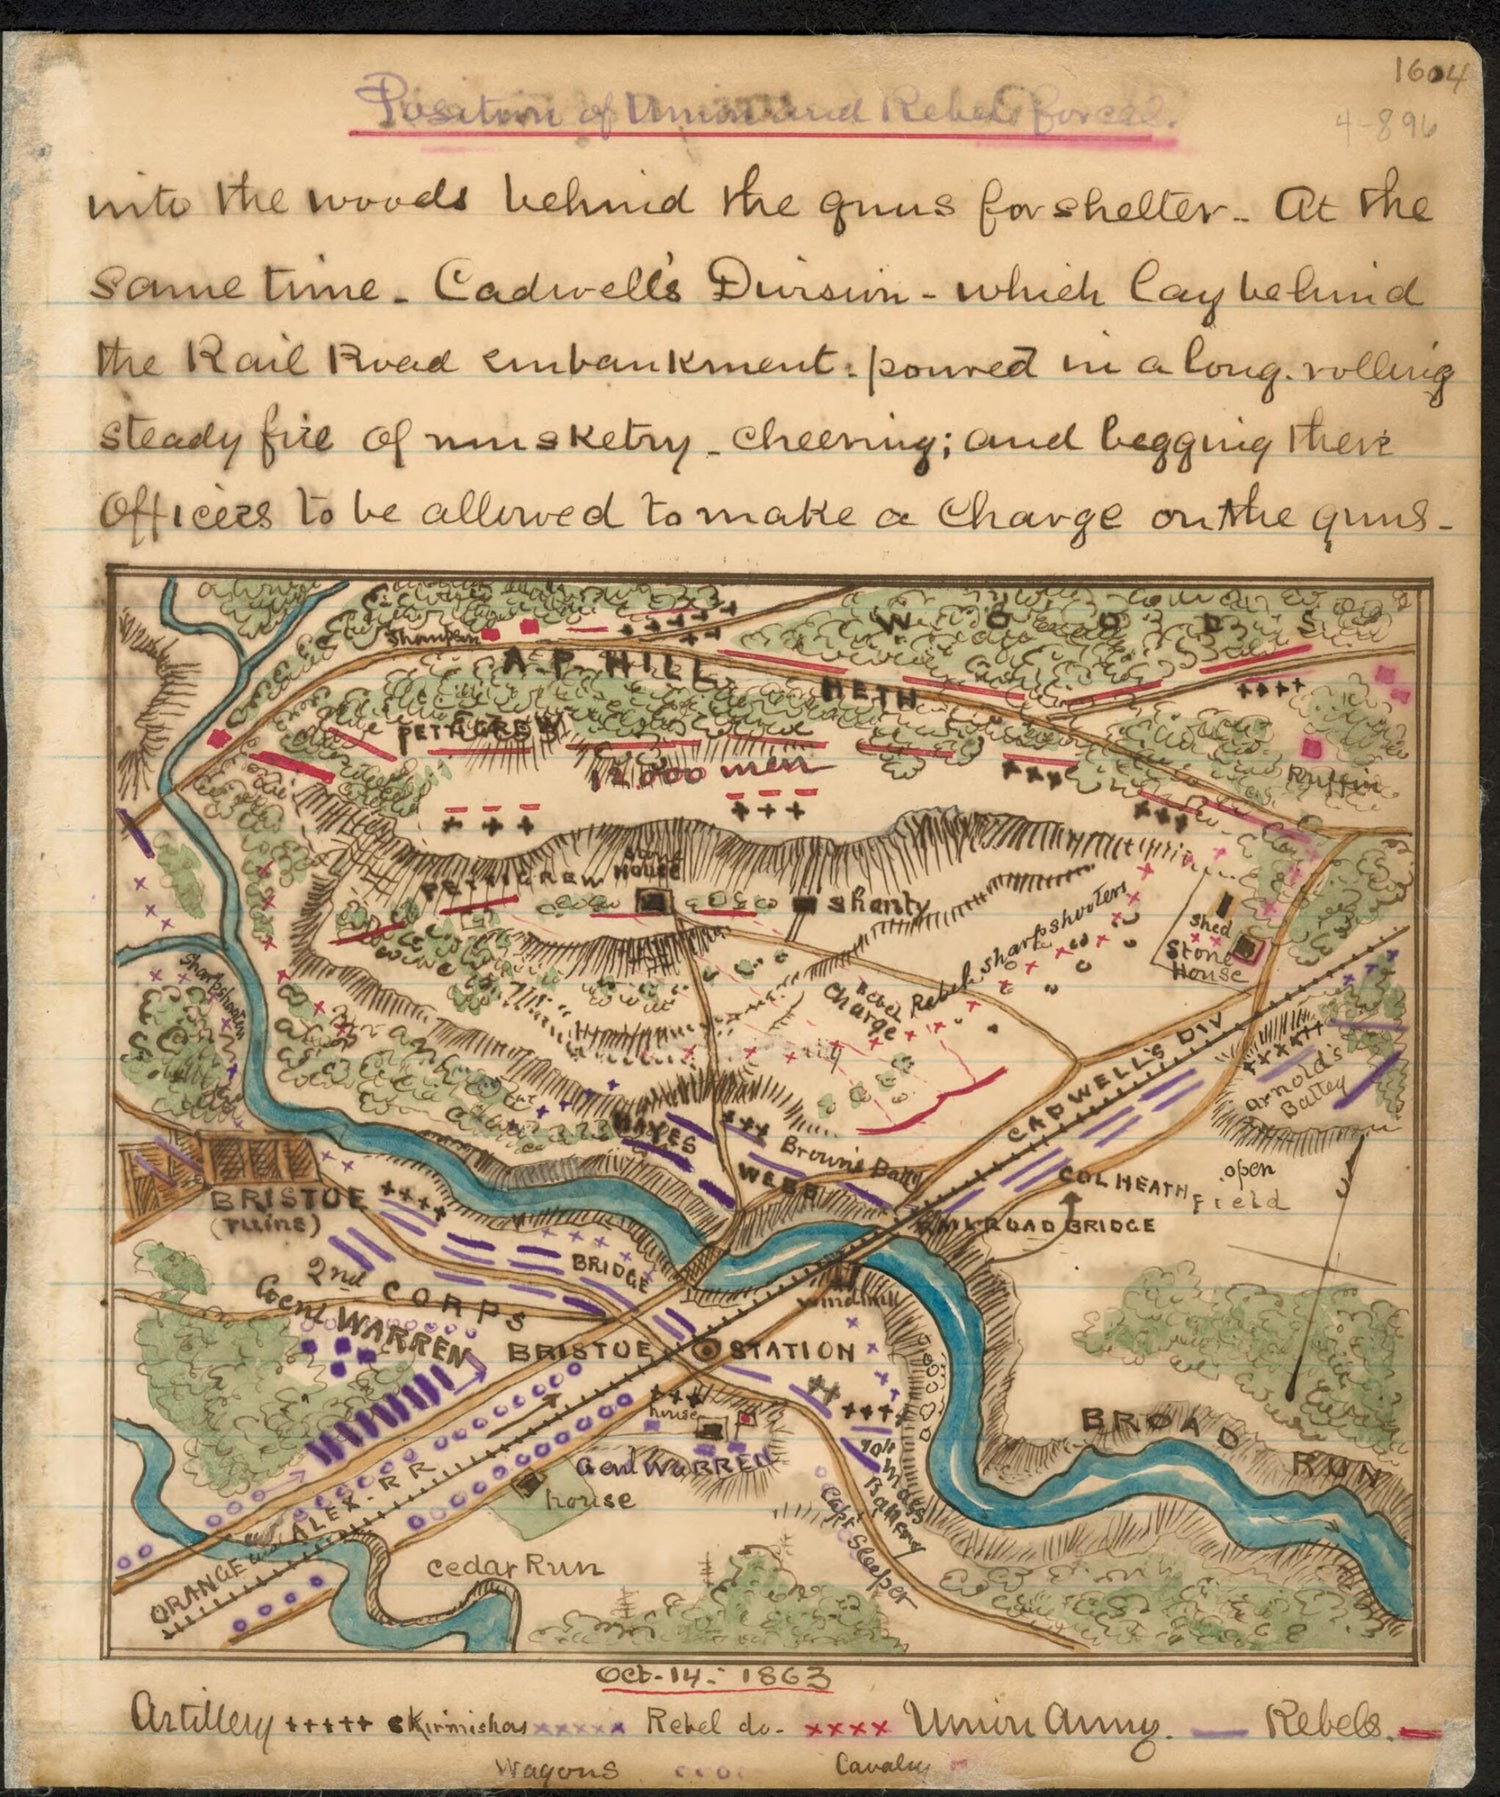 1604
4-896
Position of Union and Rebel forces.
into the woods behind the guns for shelter - At the
same time - Cadwell's Division - which lay behind
the Rail Road embankment - poured in a long - rolling
steady fire of musketry - cheering; and begging there
Officers to be allowed to make a charge on the guns -
WOODS
A P HILL
HETH
PETTIGREW
12,000 men
Ruffin
Stone
House
PETTIGREW
Shanty
Shed
Stone
House
Rebel sharpshooters
Rebel
Charge
Sharpshooters
CADWELL'S DIV
Arnold's
Battey
HAYES
Brown's Batty
WEBB
COL HEATH
open
Field
RAILROAD BRIDGE
BRISTOE
(ruins)
BRIDGE
2nd CORPS
Genl WARREN
windmill
BRISTOE STATION
house
Genl WARREN
house
10th Mass
Battery
Capt Sleeper
BROAD RUN
ORANGE and ALEX. R R
Cedar Run
Oct - 14 - 1863
Artillery +++++ Skirmishers xxxxx Rebel do. xxxx Union Army. — Rebels. —
Wagons Cavalry